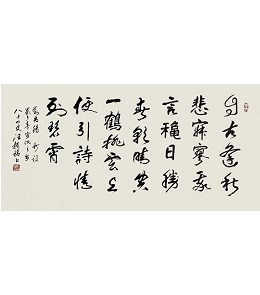 自古逢秋
悲寂寥我
言穐日勝
春朝晴空
一鶴排雲上
便引詩情
到碧霄
劉禹錫秋詞
八十四叟汪